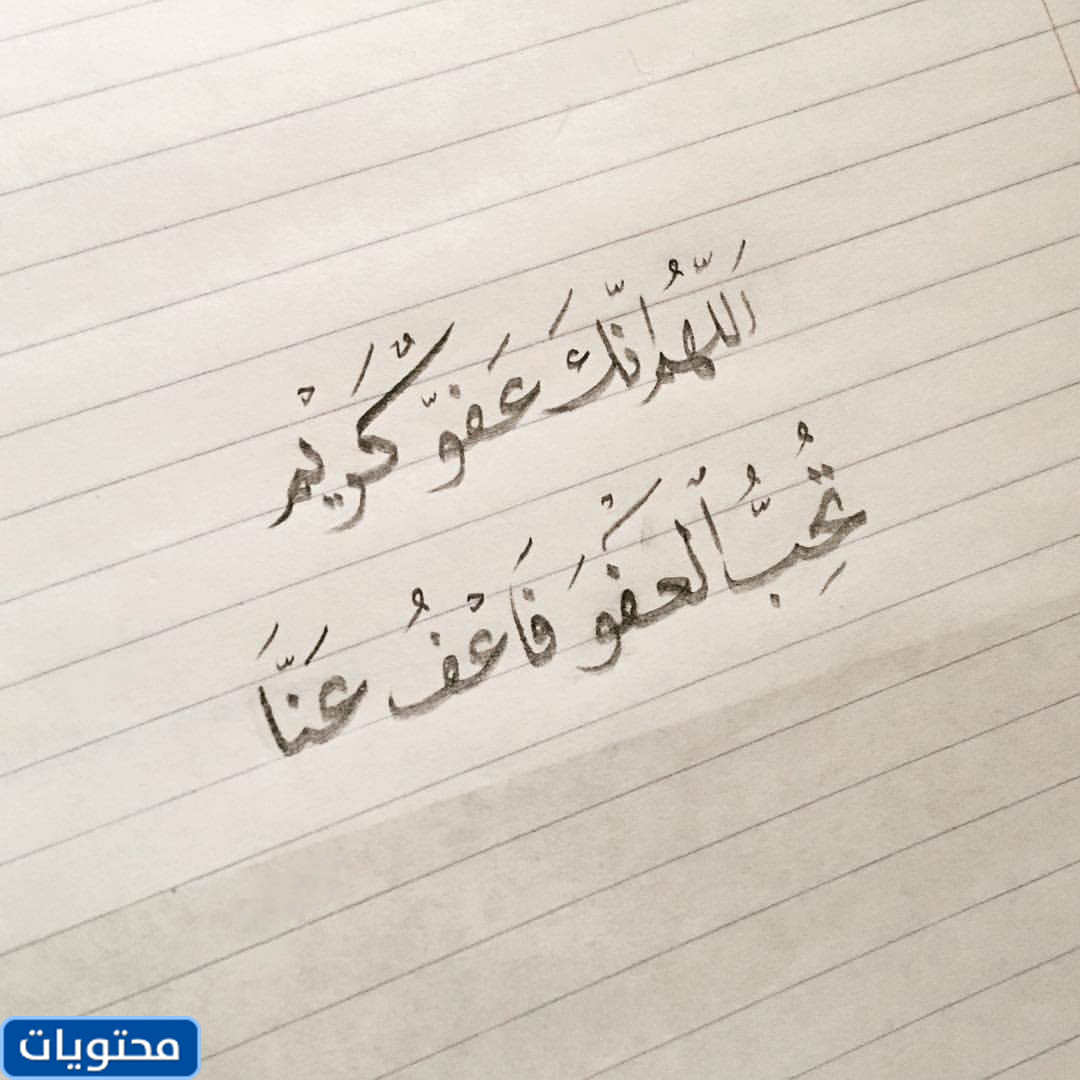 اَللّٰهُمَّ انَّكَ عَفوٌّ كَرِيْمْ
تُحِبُّ ٱلْعَفْوَ فَاَعْفُ عَنَّا
محتويات